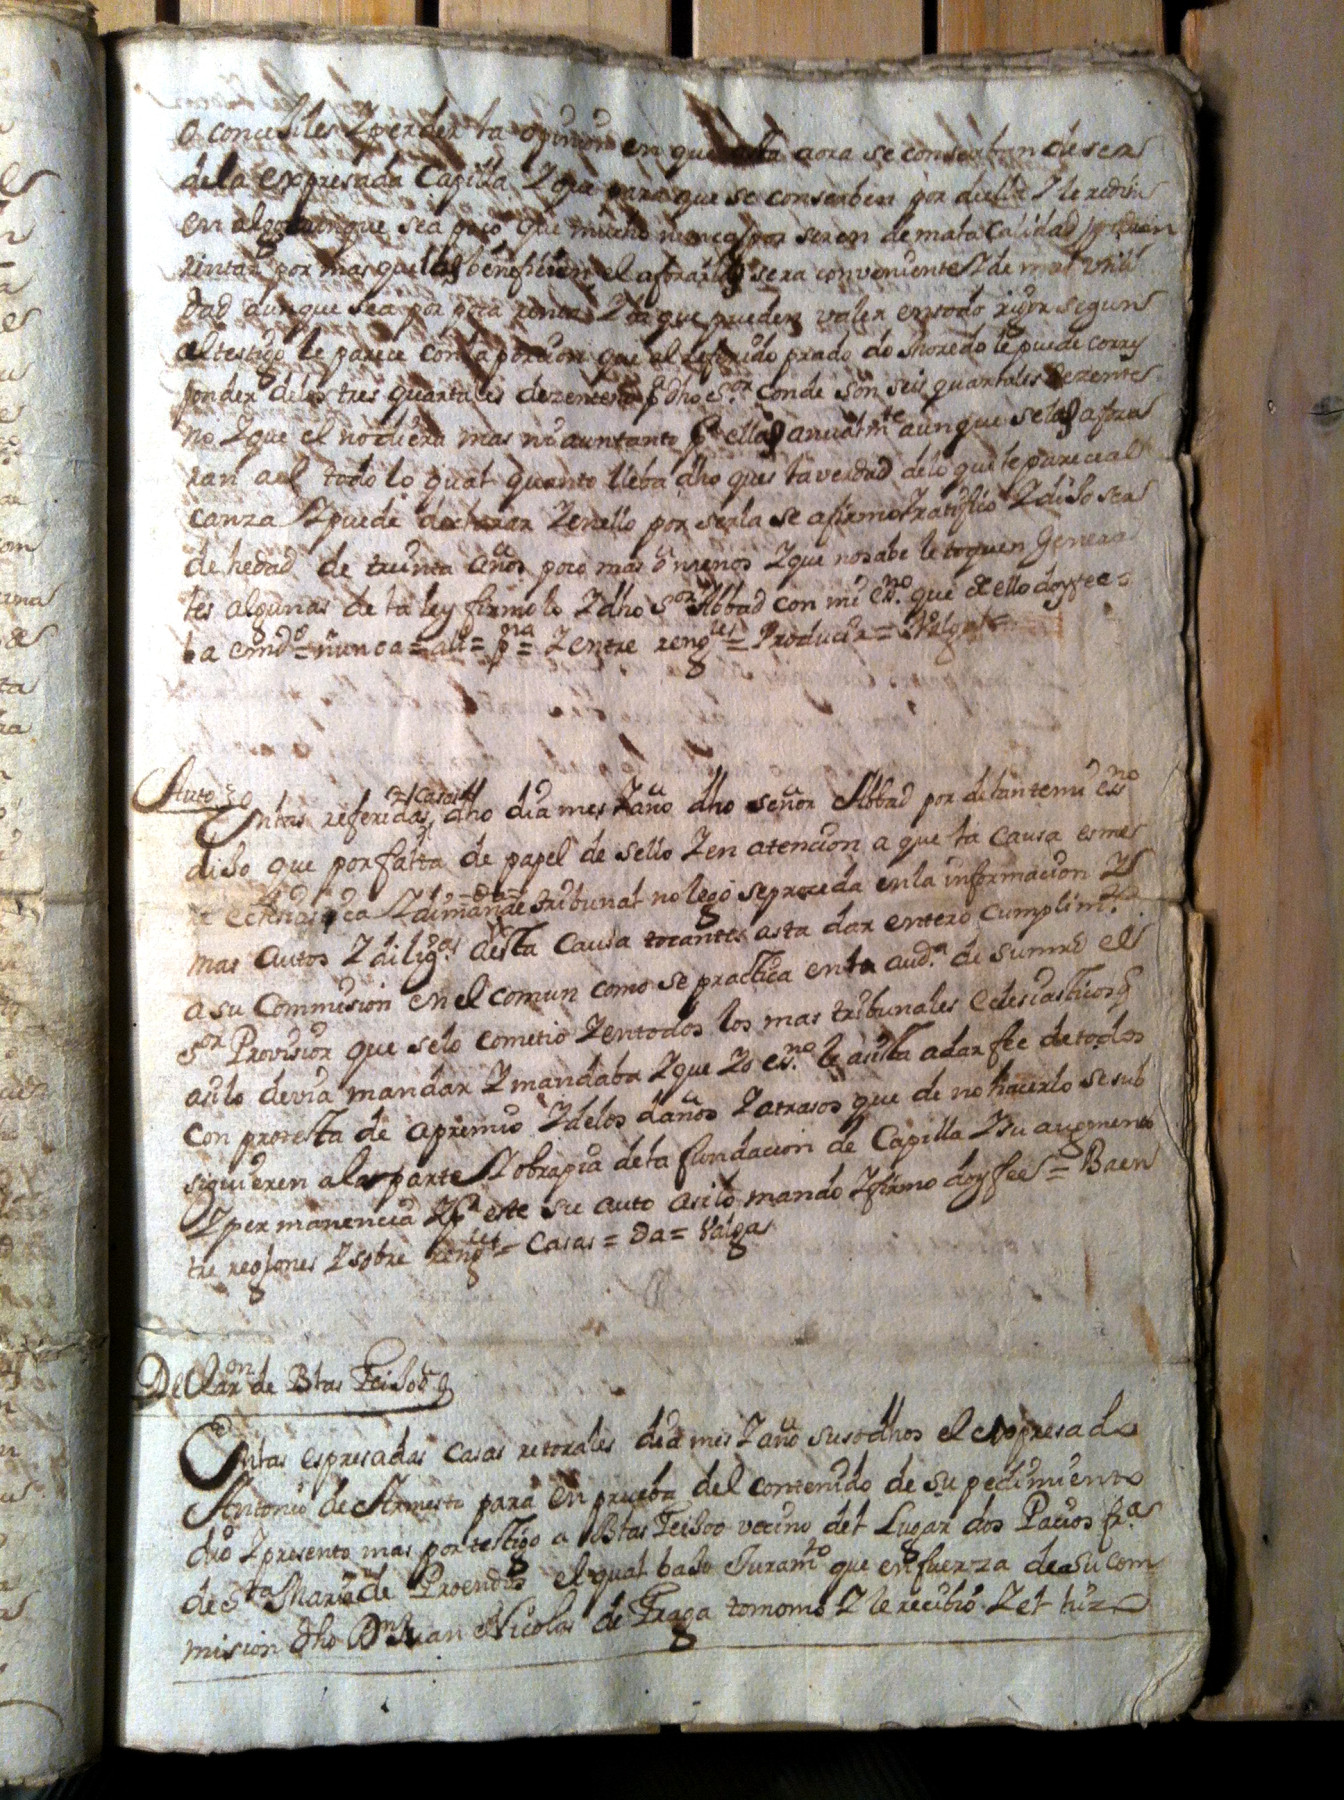 o concebiles Y perder la opinion en que asta aora se conserban de ser
dela expresada Capilla Y que para que se conserben por de ella Y le rediten
en algo aunque sea poco que mucho nunca por seren de mala calidad podran
rintar por mas que las beneficien el aforarlas sera conveniente Y de mas utili
dad aunque sea por poca renta Y la que pueden valer en todo rigor segun
al testigo le parece con la porcion que al referido prado do Moredo le puede corres
ponder delos tres quartales de zenteno pa dho sor Conde son seis quartales de zente
no Y que el no diera mas ni aun tanto por ellas anualmte aunque se las afora
ran a el todo lo qual quanto lleba dho ques la verdad delo que le parece al
canza Y puede declarar Y en ello por serla se afirmo Y ratifico Y dijo ser
de hedad de treinta años poco mas o menos Y que no sabe le toquen Genera
les algunas de la ley firmolo Y dho sor Abbad con mi esno que de ello doy fee=
ba emdo= nunca = ali= pna = Y entre rengles= Producir = Valga =
Auto
Enlas referidas casas dho dia mes Y año dho señor Abbad por delante mi esno
dijo que por falta de papel de sello Y en atencion a que la causa es me
re eclesiastica Y dimanãde da tribunal no lego se proceda en la informacion Y
mas autos Y diligas desta Causa tocantes asta dar entero cumplimto
a su Commision en el comun como se practica en la auda de su mrd el
sor Provisor que selo cometio Y en todos los mas tribunales eclesiasticos q
asi lo devia mandar Y mandaba Y que Yo esno le asista a dar fee de todos
con protesta de apremio Y delos daños Y atrasos que de no hacerlo se sub
siguieren a la parte Y obra pia dela fundacion de Capilla Y su augmento
Y permanencia Y pr este su auto asi lo mando Y firmo doy fee = Ba en
tre regjones Y sobre rengles= Casas = Da = Valgas
De Claron de Blas Feijoo
Enlas espresadas casas retorales dia mes Y año susodhos el expresado
Antonio de Armesto para en prueba del contenido de su pedimiento
dio Y presento mas por testigo a Blas Feijoo vecino del Lugar dos Pacios fra
de Sta Maria de Proendos el qual bajo Juramto que en fuerza de a su com
mision dho Dn Juan Nicolas de Fraga tomomo Y le recibio Y el hizo